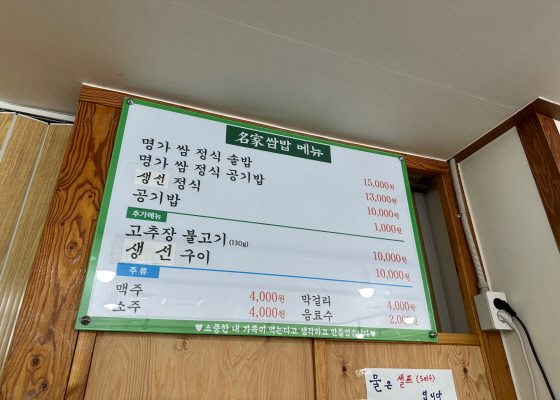 名家쌈밥 메뉴
명가 쌈 정식 솥밥 15,000원
명가 쌈 정식 공기밥 13,000원
생선 정식 10,000원
공기밥 1,000원
추가메뉴
고추장 불고기 (130g) 10,000원
생 선 구이 10,000원
주 류
맥주 4,000원 막걸리 4,000원
소주 4,000원 음료수 2,000원
♥소중한 내 가족이 먹는다고 생각하고 만들었습니다♥
물은 셀프(Self)